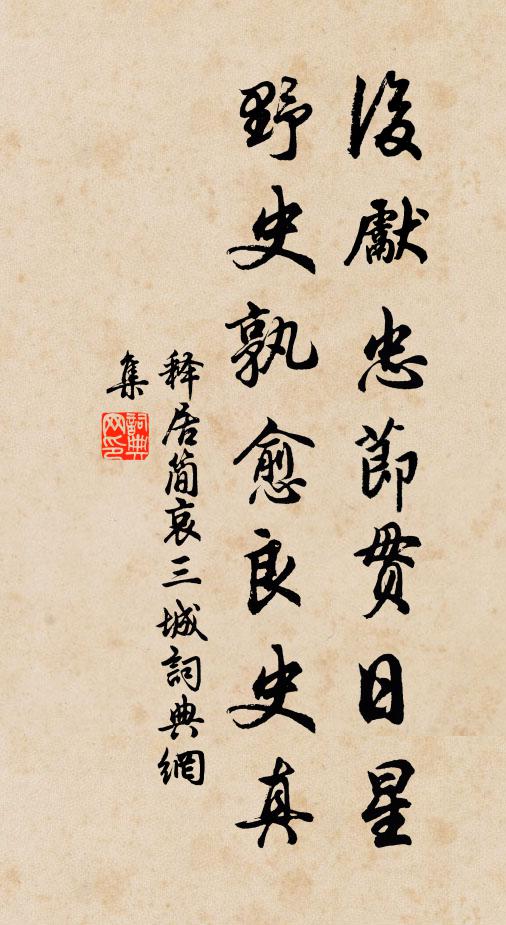 後獻忠節貫日星
野史孰愈良史真
释居簡哀三城詞典網
集
詞典网印